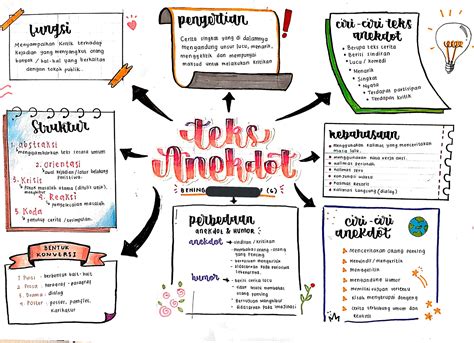 fungsi
Menyampaikan kritik terhadap
kejadian yang menyangkut orang
banyak / hal-hal yang berkaitan
dengan tokoh publik.
pengertian
Cerita singkat yang di dalamnya
mengandung unsur lucu, menarik,
menggelitik dan mempunyai
maksud untuk melakukan kritikan
ciri-ciri teks
anekdot
Berupa teks cerita
Bersifat sindiran
Lucu / komedi
Menarik
Singkat
Nyata
Terdapat partisipan
Terdapat kritik
Struktur
1. Abstraksi
2. Orientasi
awal kejadian / latar belakang
peristiwa.
3. Krisis
4. Reaksi
penyelesaian masalah
5. Koda
penutup cerita / kesimpulan.
teks
Anekdot
BENING (6)
kebahasaan
menggunakan kalimat yang menyatakan
masa lalu.
menggunakan kata kerja aksi.
kalimat perintah
kalimat seru
konjungsi waktu
kalimat retoris
kalimat langsung (dialog)
BENTUK
KONVERSI
1. Puisi - berbentuk bait-bait
2. Prosa - paragraf
3. Drama - dialog
4. Poster - poster, pamflet,
karikatur
perbedaan
anekdot & humor
anekdot → sindiran / kritikan
→ membicarakan orang-orang
yang penting
→ bertujuan mengkritik
humor
→ berisi cerita lucu
→ tidak membicarakan orang
penting
→ bertujuan menghibur
ciri-ciri
anekdot
Menceritakan orang penting
Menyindir / mengkritik
Menggelitik
Mengandung humor
Memiliki tujuan tertentu
kisah menyerupai dongeng